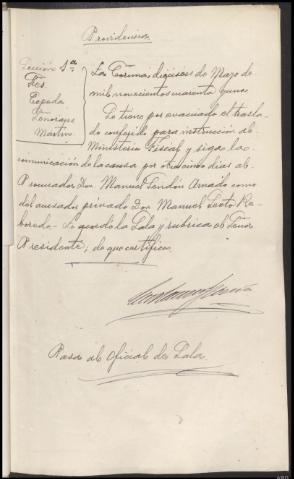 Providencia
Sección 1ª
Sres.
Cepeda
Martín
La Coruña, dieciseis de Mayo de
mil novecientos cuarenta y uno
Se tiene por evacuado el trasla-
do conferido para instrucción al
Ministerio Fiscal y siga la co-
municación de la causa por otros cinco días al
Procurador Don Manuel Pardos Amado como
del acusador privado Don Manuel Soto Ta-
boada. Lo acordó la Sala y rubrica el Señor
Presidente; de que certifico.
Pasa al Oficial de Sala